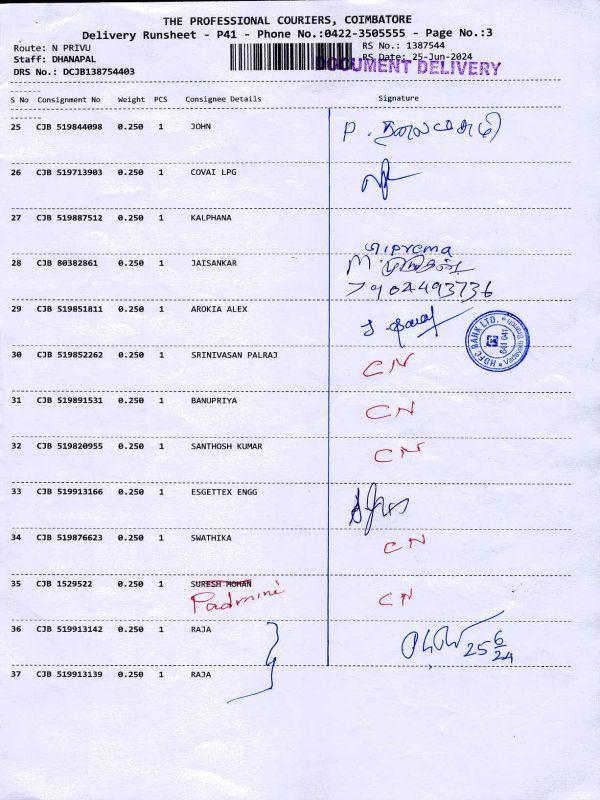 THE PROFESSIONAL COURIERS, COIMBATORE
Delivery Runsheet - P41 - Phone No.:0422-3505555 - Page No.:3
Route: N PRIVU
RS No.: 1387544
Staff: DHANAPAL
RS Date: 25-Jun-2024
DRS No.: DCJB138754403
DOCUMENT DELIVERY
S No Consignment No Weight PCS Consignee Details Signature
25 CJB 519844098 0.250 1 JOHN P.
26 CJB 519713903 0.250 1 COVAI LPG
27 CJB 519887512 0.250 1 KALPHANA
28 CJB 80382861 0.250 1 JAISANKAR M.
7904493736
29 CJB 519851811 0.250 1 AROKIA ALEX
HDFC BANK LTD. 641 041
30 CJB 519852262 0.250 1 SRINIVASAN PALRAJ CN
31 CJB 519891531 0.250 1 BANUPRIYA CN
32 CJB 519820955 0.250 1 SANTHOSH KUMAR CN
33 CJB 519913166 0.250 1 ESGETTEX ENGG
34 CJB 519876623 0.250 1 SWATHIKA CN
35 CJB 1529522 0.250 1 SURESH MOHAN
Padmini CN
36 CJB 519913142 0.250 1 RAJA 25 6/24
37 CJB 519913139 0.250 1 RAJA